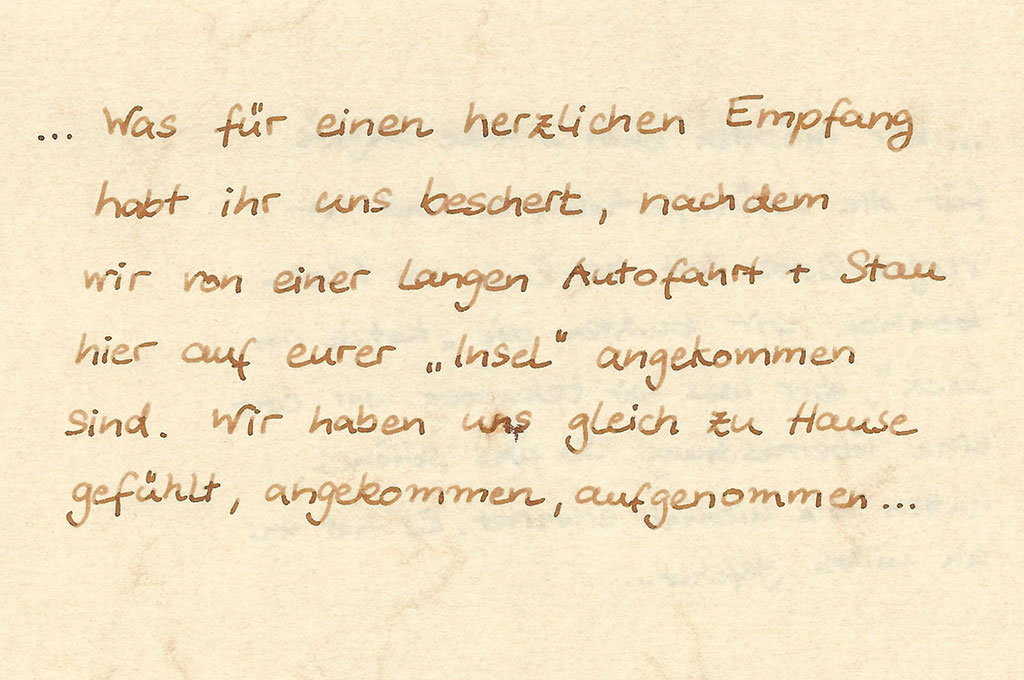 ... Was für einen herzlichen Empfang
habt ihr uns beschert, nachdem
wir von einer langen Autofahrt + Stau
hier auf eurer „Insel“ angekommen
sind. Wir haben uns gleich zu Hause
gefühlt, angekommen, aufgenommen...